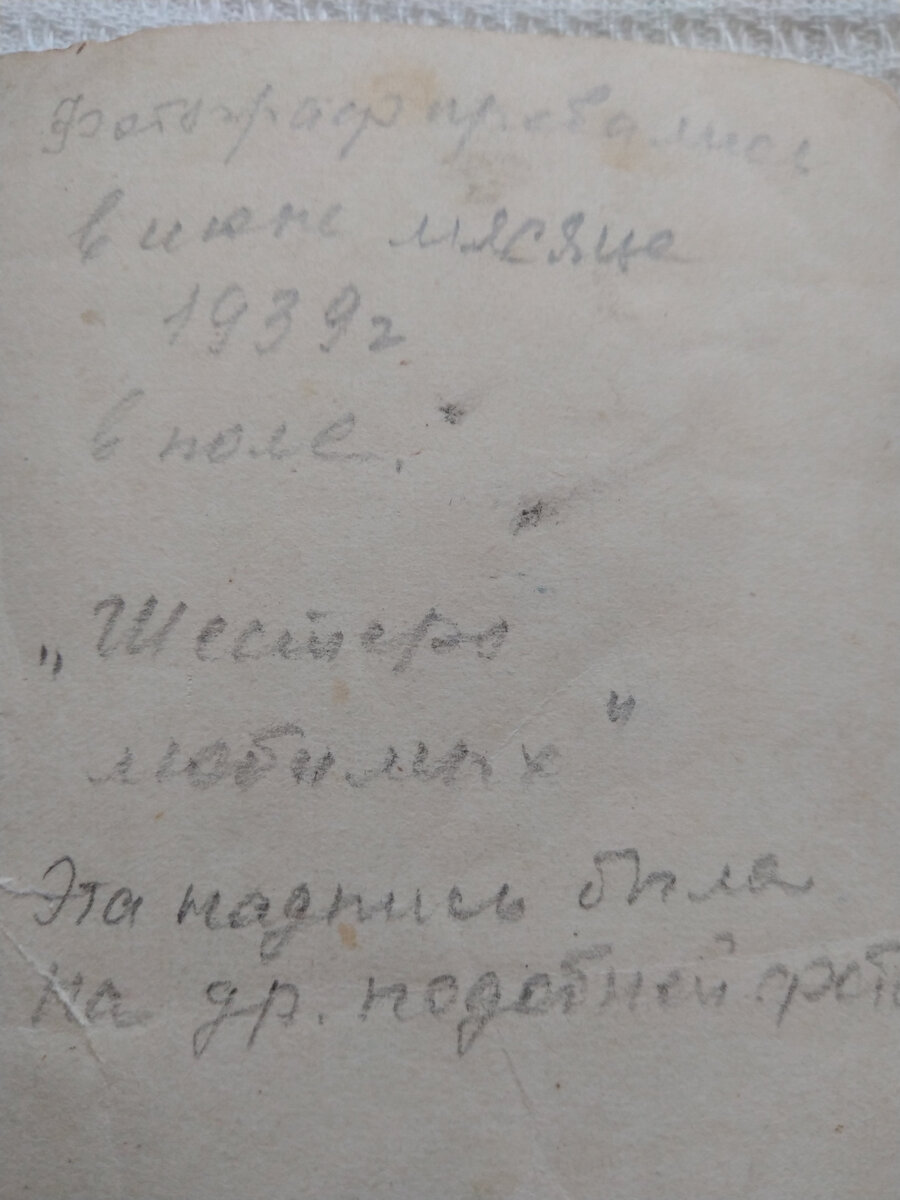 Фотографировались
в июне мясяце
1939г
в поле."
„Шестеро
любимых"
Эта надпись была
на др. подобной фото